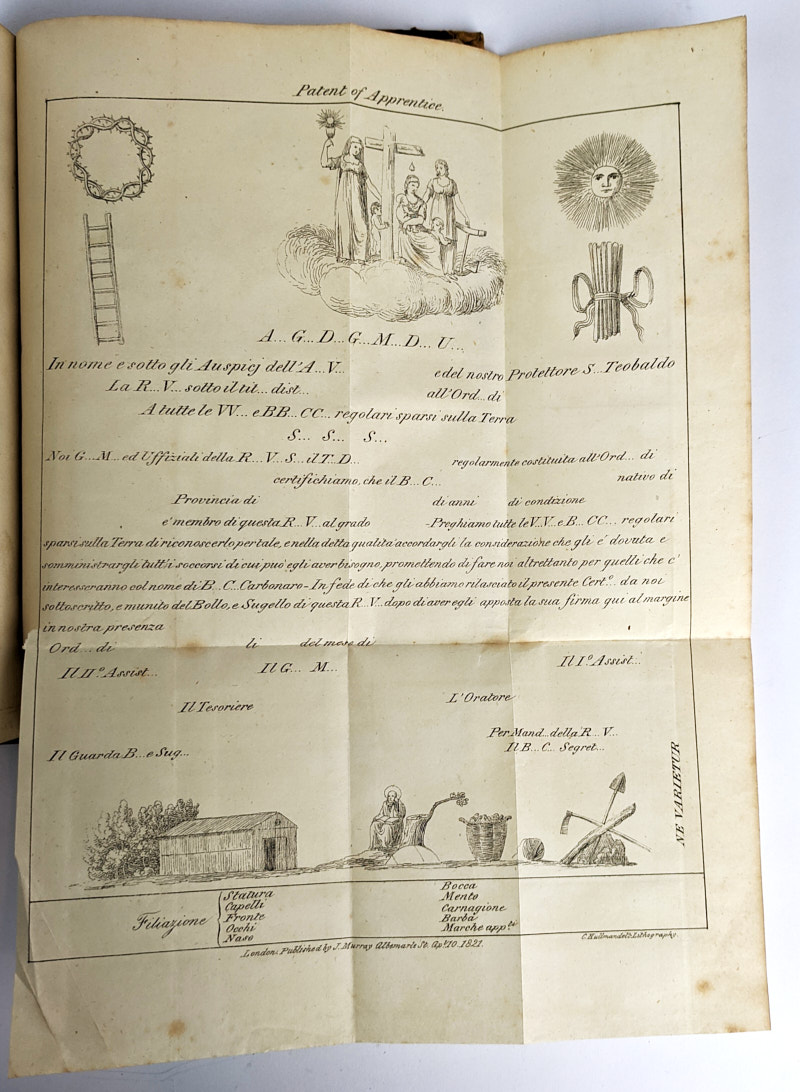 Patent of Apprentice.
A... G... D... G... M... D... U...
In nome e sotto gli Auspicj dell'A... V... e del nostro Protettore S... Teobaldo
La R... V... sotto il tit... dist... all'Ord... di
A tutte le VV... e BB... CC... regolari sparsi sulla Terra
S... S... S...
Noi G... M... ed Uffiziali della R... V... S... il T... D... regolarmente costituita all'Ord... di
certifichiamo, che il B... C... nativo di
Provincia di di anni di condizione
e' membro di questa R... V... al grado -Preghiamo tutte le V.V. e B... CC... regolari
sparsi sulla Terra di riconoscerlo per tale, e nella detta qualita' accordargli la considerazione che gli e' dovuta e
somministrargli tutti i soccorsi di cui puo' egli aver bisogno, promettendo di fare noi altrettanto per quelli che c'
interesseranno col nome di B... C... Carbonaro - In fede di che gli abbiamo rilasciato il presente Cert.o... da noi
sottoscritto, e munito del Bollo, e Sugello di questa R... V... dopo di aver egli apposta la sua firma qui al margine
in nostra presenza
Ord... di li del mese di
Il II.o Assist... Il G... M... Il I.o Assist...
Il Tesoriere L'Oratore
Per Mand... della R... V...
Il Guarda B... e Sug... Il B... C... Segret...
NE VARIETUR
Filiazione
Statura
Capelli
Fronte
Occhi
Naso
Bocca
Mento
Carnagione
Barba
Marche app.ti
London, Published by J. Murray Albemarle St. Apl. 10. 1821.
C. Hullmandel's Lithography.